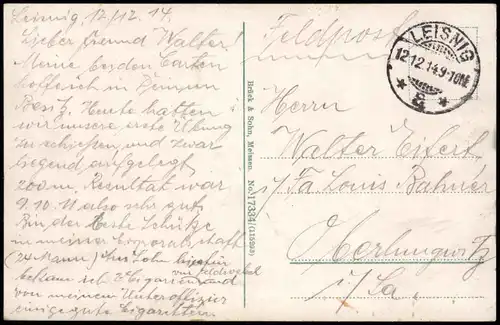 Leisnig, 12/12. 14.
Lieber Freund Walter!
Meine beiden Karten
hoffentlich in Deinem
Besitz. Heute hatten
wir unsere erste Übung
zu schießen und zwar
liegend aufgelegt
200 m. Resultat war
9. 10. 11 also sehr gut
Bin der beste Schütze
in meiner Korporalschaft
(24 Mann) Zum Lohn hierfür
bekam ich 2 Zigarren
vom Feldwebel
von meinem Unteroffizier
einige gute Cigaretten
Brück & Sohn, Meissen. No. 17334
Feldpost
LEISNIG
12.12.14.9-10V.
Herrn
Walter
i/Fa Louis Bahner
i/Sa.